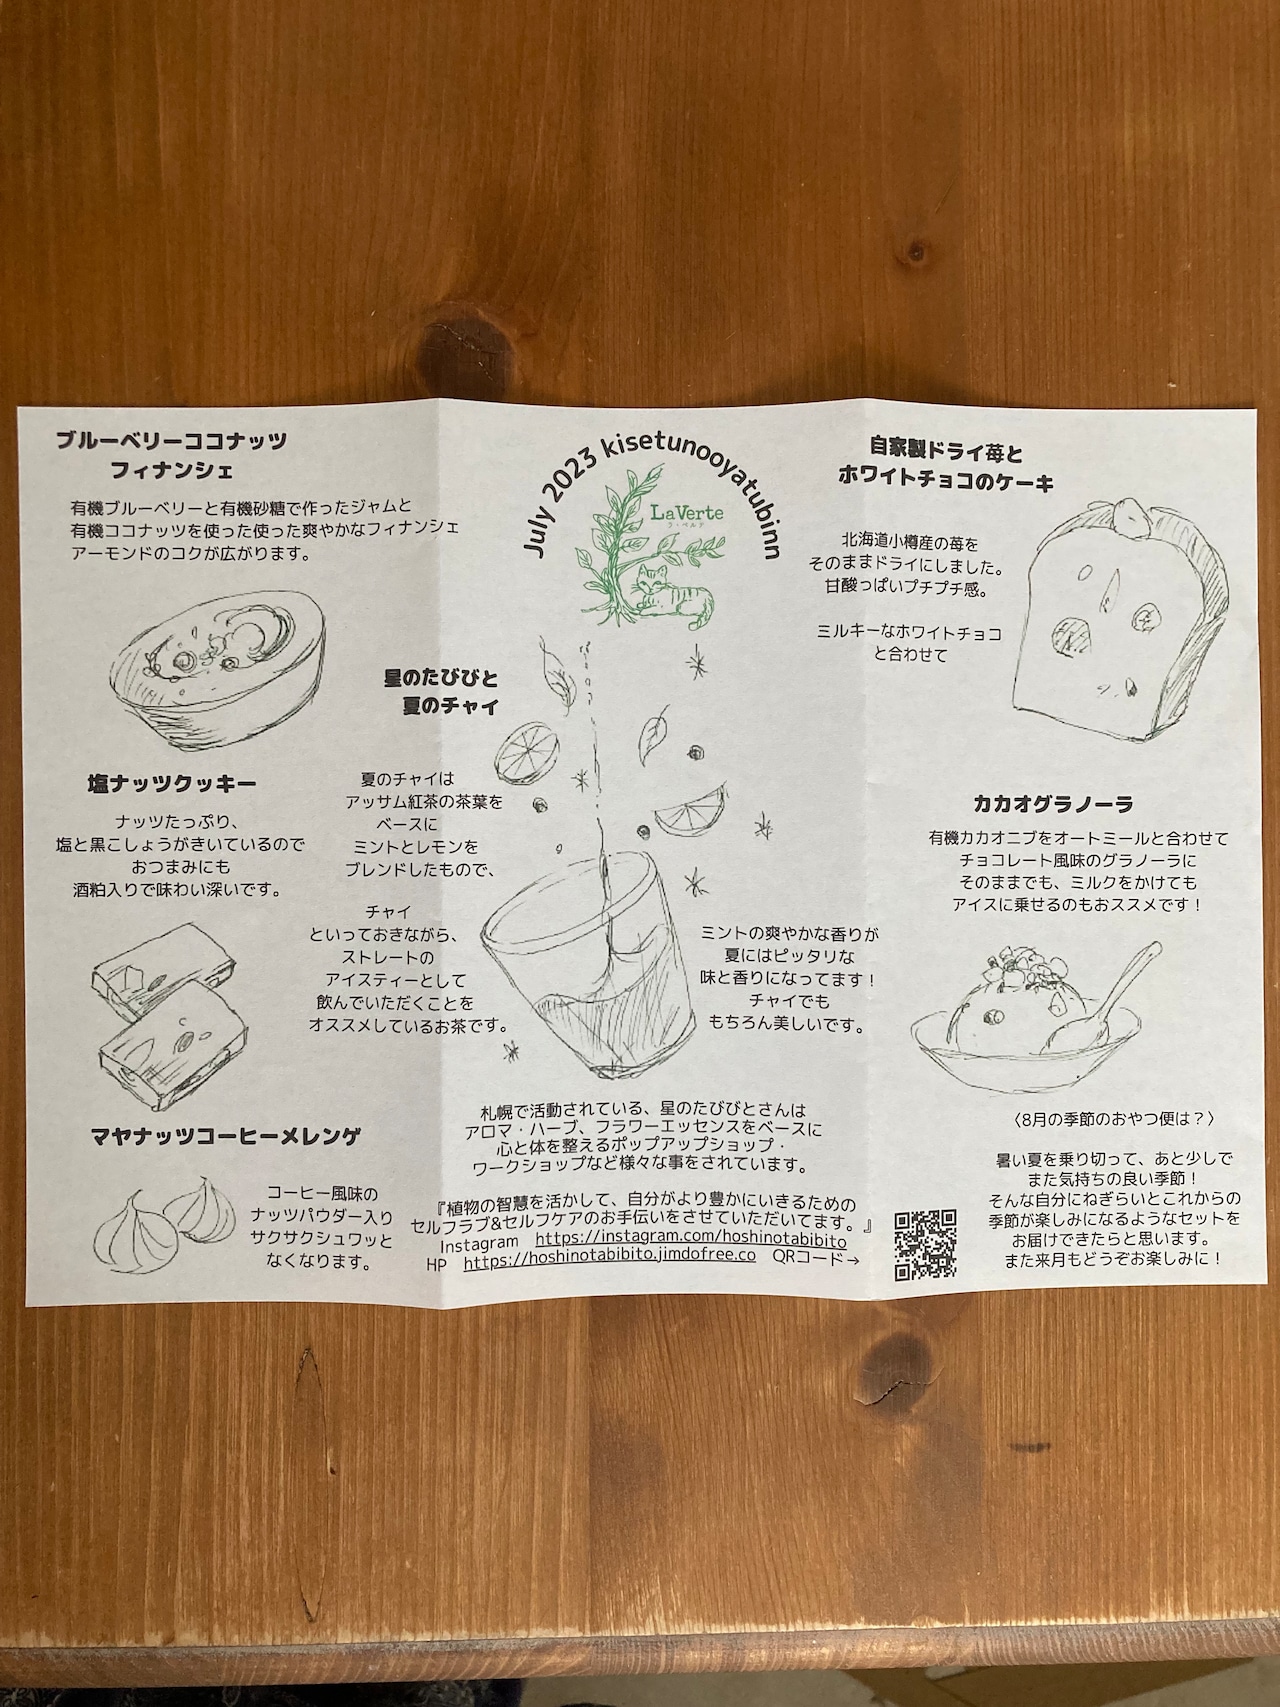 July 2023 kisetunooyatubinn
LaVerte
ラ・ベルテ
ブルーベリーココナッツ
フィナンシェ
有機ブルーベリーと有機砂糖で作ったジャムと
有機ココナッツを使った使った爽やかなフィナンシェ
アーモンドのコクが広がります。
塩ナッツクッキー
ナッツたっぷり、
塩と黒こしょうがきいているので
おつまみにも
酒粕入りで味わい深いです。
マヤナッツコーヒーメレンゲ
コーヒー風味の
ナッツパウダー入り
サクサクシュワッと
なくなります。
星のたびびと
夏のチャイ
夏のチャイは
アッサム紅茶の茶葉を
ベースに
ミントとレモンを
ブレンドしたもので、
チャイ
といっておきながら、
ストレートの
アイスティーとして
飲んでいただくことを
オススメしているお茶です。
ミントの爽やかな香りが
夏にはピッタリな
味と香りになってます！
チャイでも
もちろん美しいです。
札幌で活動されている、星のたびびとさんは
アロマ・ハーブ、フラワーエッセンスをベースに
心と体を整えるポップアップショップ・
ワークショップなど様々な事をされています。
『植物の智慧を活かして、自分がより豊かにいきるための
セルフラブ&セルフケアのお手伝いをさせていただいてます。』
Instagram https://instagram.com/hoshinotabibito
HP https://hoshinotabibito.jimdofree.co QRコード→
自家製ドライ苺と
ホワイトチョコのケーキ
北海道小樽産の苺を
そのままドライにしました。
甘酸っぱいプチプチ感。
ミルキーなホワイトチョコ
と合わせて
カカオグラノーラ
有機カカオニブをオートミールと合わせて
チョコレート風味のグラノーラに
そのままでも、ミルクをかけても
アイスに乗せるのもおススメです！
〈8月の季節のおやつ便は？〉
暑い夏を乗り切って、あと少しで
また気持ちの良い季節！
そんな自分にねぎらいとこれからの
季節が楽しみになるようなセットを
お届けできたらと思います。
また来月もどうぞお楽しみに！